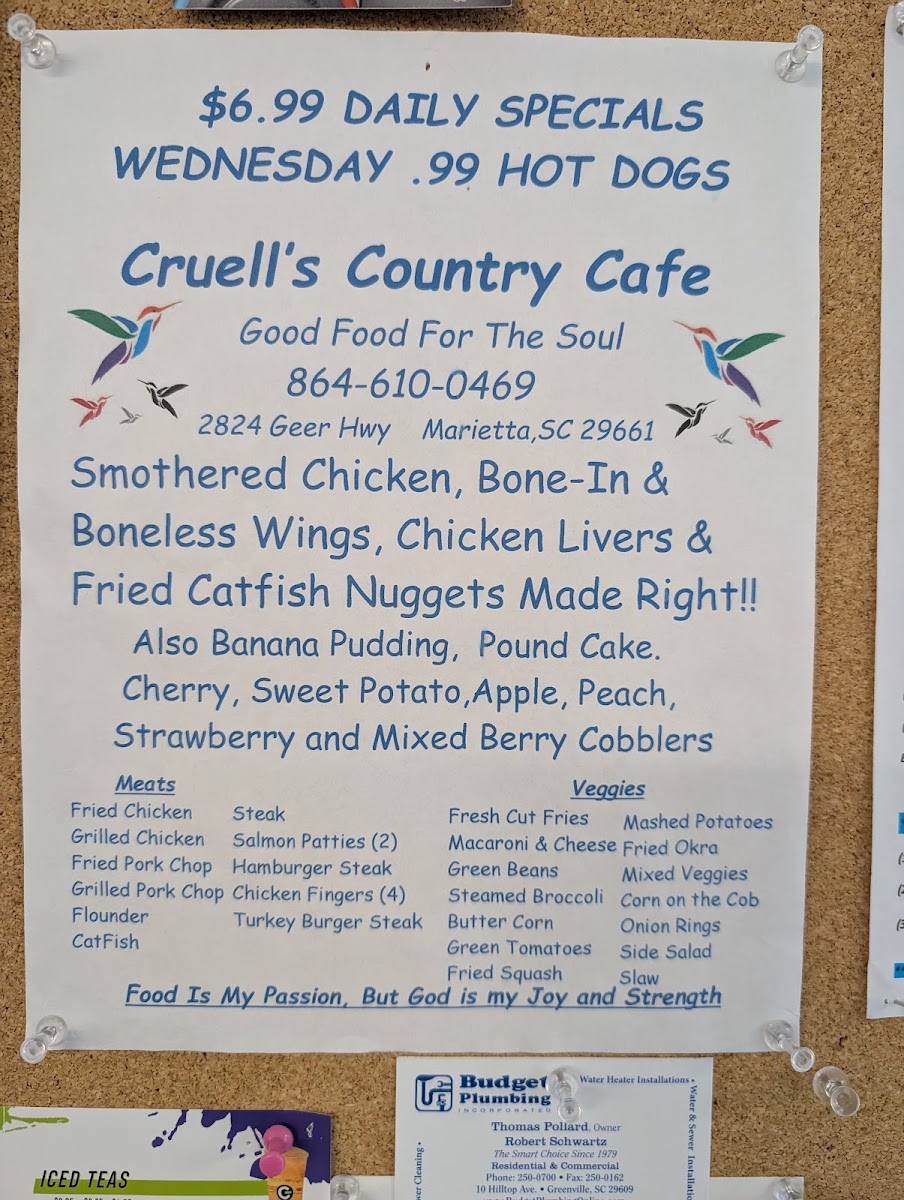 $6.99 DAILY SPECIALS
WEDNESDAY .99 HOT DOGS
Cruell's Country Cafe
Good Food For The Soul
864-610-0469
2824 Geer Hwy Marietta,SC 29661
Smothered Chicken, Bone-In &
Boneless Wings, Chicken Livers &
Fried Catfish Nuggets Made Right!!
Also Banana Pudding, Pound Cake.
Cherry, Sweet Potato,Apple, Peach,
Strawberry and Mixed Berry Cobblers
Meats
Fried Chicken
Grilled Chicken
Fried Pork Chop
Grilled Pork Chop
Flounder
CatFish
Steak
Salmon Patties (2)
Hamburger Steak
Chicken Fingers (4)
Turkey Burger Steak
Veggies
Fresh Cut Fries
Macaroni & Cheese
Green Beans
Steamed Broccoli
Butter Corn
Green Tomatoes
Fried Squash
Mashed Potatoes
Fried Okra
Mixed Veggies
Corn on the Cob
Onion Rings
Side Salad
Slaw
Food Is My Passion, But God is my Joy and Strength
ICED TEAS
Budget
Plumbing
INCORPORATED
Water Heater Installations •
Water & Sewer
Thomas Pollard, Owner
Robert Schwartz
The Smart Choice Since 1979
Residential & Commercial
Phone: 250-0700 • Fax: 250-0162
10 Hilltop Ave. • Greenville, SC 29609
Cleaning •